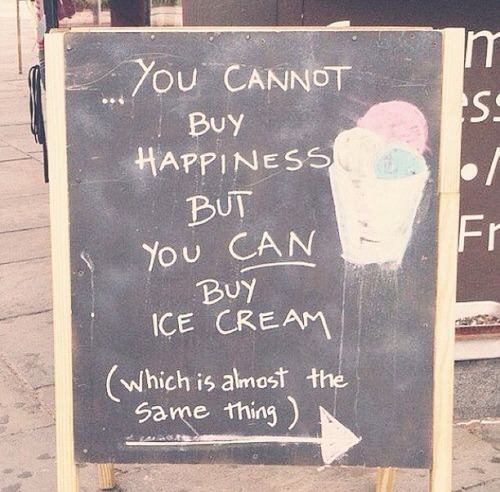 ...YOU CANNOT
BUY
HAPPINESS
BUT
YOU CAN
BUY
ICE CREAM
(Which is almost the
same thing)